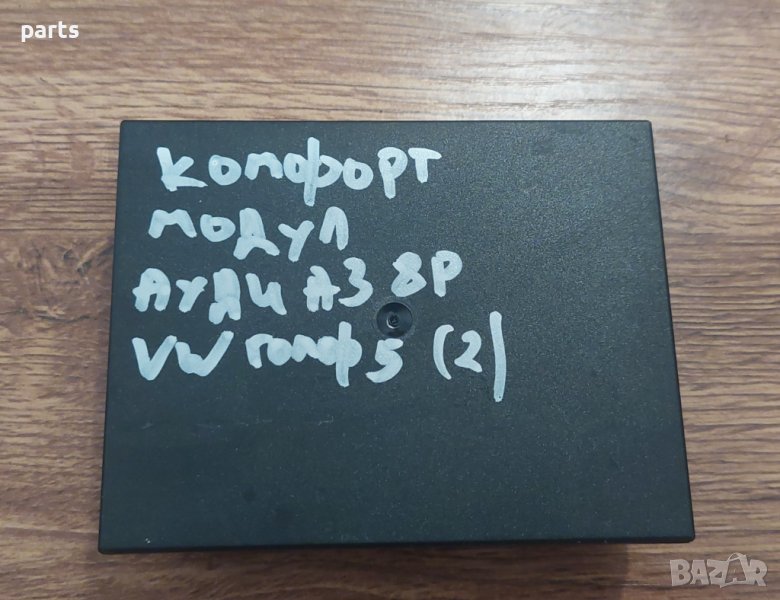 parts
комфорт
модул
Ауди А3 8Р
VW голф 5 (2)
BAZAR